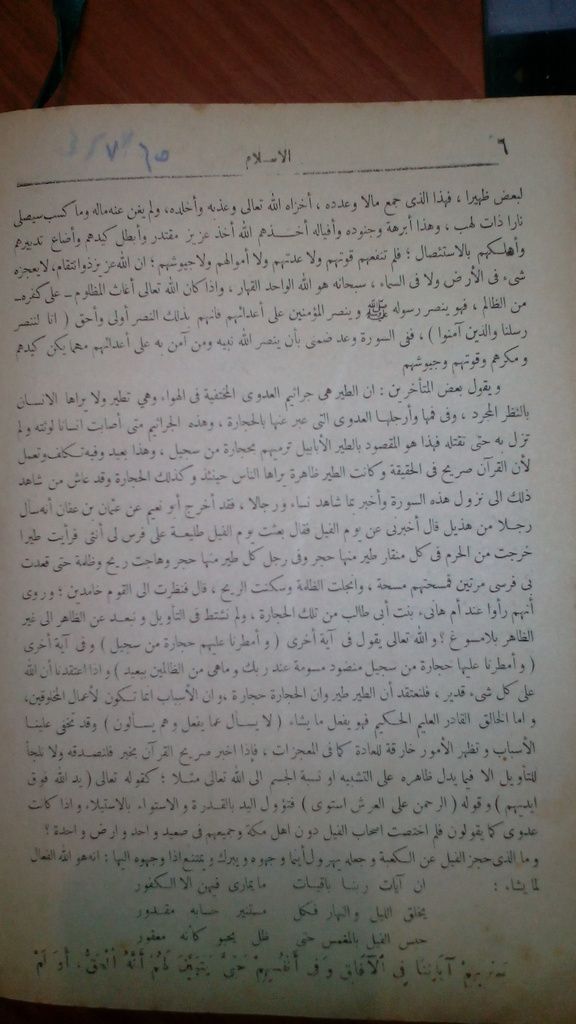 ٦
الاسلام
لبعض ظهيرا ، فهذا الذى جمع مالا وعدده ، أخزاه الله تعالى وعذبه وأخلده، ولم يغن عنه ماله وما كسب سيصلى
نارا ذات لهب ، وهذا أبرهة وجنوده وأفياله أخذهم الله أخذ عزيز مقتدر وأبطل كيدهم وأضاع تدبيرهم
وأهلكهم بالاستئصال ؛ فلم تنفعهم قوتهم ولا عدتهم ولا أموالهم ولا جيوشهم ؛ ان الله عزيز ذو انتقام، لايعجزه
شىء فى الأرض ولا فى السماء ، سبحانه هو الله الواحد القهار ، واذا كان الله تعالى أغاث المظلوم ــ على كفره ــ
من الظالم ، فهو ينصر رسوله ﷺ وينصر المؤمنين على أعدائهم فانهم بذلك النصر أولى وأحق ( انا لننصر
رسلنا والذين آمنوا ) ، ففى السورة وعد ضمنى بأن ينصر الله نبيه ومن آمن به على أعدائهم مهما يكن كيدهم
ومكرهم وقوتهم وجيوشهم
ويقول بعض المتأخرين : ان الطير هى جراثيم العدوى المختفية فى الهواء وهي تطير ولا يراها الانسان
بالنظر المجرد ، وفى فمها وأرجلها العدوى التى عبر عنها بالحجارة ، وهذه الجراثيم متى أصابت انسانا لوثته ولم
تزل به حتى تقتله فهذا هو المقصود بالطير الأبابيل ترميهم بحجارة من سجيل ، وهذا بعيد وفيه تكلف وتعمل
لأن القرآن صريح فى الحقيقة وكانت الطير ظاهرة يراها الناس حينئذ وكذلك الحجارة وقد عاش من شاهد
ذلك الى نزول هذه السورة وأخبر بما شاهد نساء ورجالا ، فقد أخرج أبو نعيم عن عثمان بن عفان أنه سأل
رجلا من هذيل قال أخبرنى عن يوم الفيل فقال بعثت يوم الفيل طليعة على فرس لى أنثى فرأيت طيرا
خرجت من الحرم فى كل منقار طير منها حجر وفى رجل كل طير منها حجر وهاجت ريح وظلمة حتى قعدت
بى فرسى مرتين فمسحتهم مسحة ، وانجلت الظلمة وسكنت الريح ، قال فنظرت الى القوم خامدين ؛ وروى
أنهم رأوا عند أم هانىء بنت أبى طالب من تلك الحجارة ، ولم نشتط فى التأويل ونبعد عن الظاهر الى غير
الظاهر بلا مسوغ ؟ والله تعالى يقول فى آية أخرى ( وأمطرنا عليهم حجارة من سجيل ) وفى آية أخرى
( وأمطرنا عليها حجارة من سجيل منضود مسومة عند ربك وماهى من الظالمين ببعيد ) واذا اعتقدنا أن الله
على كل شىء قدير ، فلنعتقد أن الطير طير وان الحجارة حجارة ، وان الأسباب انما تكون لأعمال المخلوقين،
واما الخالق القادر العليم الحكيم فهو يفعل ما يشاء ( لا يسأل عما يفعل وهم يسألون ) وقد تخفى علينا
الأسباب وتظهر الأمور خارقة للعادة كما فى المعجزات ، فاذا اخبر صريح القرآن بخبر فلنصدقه ولا نلجأ
للتأويل الا فيما يدل ظاهره على التشبيه او نسبة الجسم الى الله تعالى مثلا ؛ كقوله تعالى ( يد الله فوق
ايديهم ) وقوله ( الرحمن على العرش استوى ) فتؤول اليد بالقدرة والاستواء بالاستيلاء واذا كانت
عدوى كما يقولون فلم اختصت اصحاب الفيل دون اهل مكة وجميعهم فى صعيد واحد وارض واحدة ؟
وما الذى حجز الفيل عن الكعبة وجعله يهرول أينما وجهوه ويبرك ويمتنع اذا وجهوه اليها : انه هو الله الفعال
لما يشاء :
ان آيات ربنا باقيات ما يمارى فيهن الا الكفور
يخلق الليل والنهار فكل مستنير حسابه مقدور
حبس الفيل بالمغمس حتى ظل يحبو كأنه معقور
سَنُرِيهِمْ آيَاتِنَا فِى الْآفَاقِ وَفِى أَنْفُسِهِمْ حَتَّى يَتَبَيَّنَ لَهُمْ أَنَّهُ الْحَقُّ ، أَوَ لَمْ